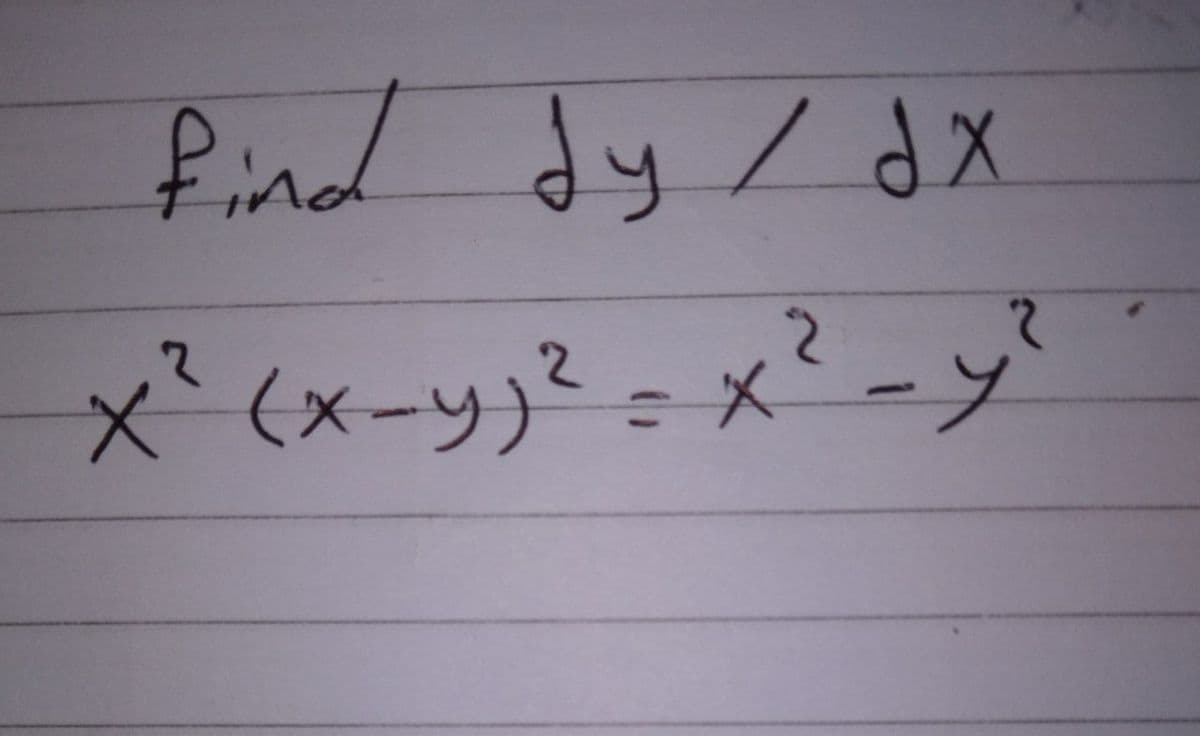 find dy / dx
x² (x-y)² = x² - y²